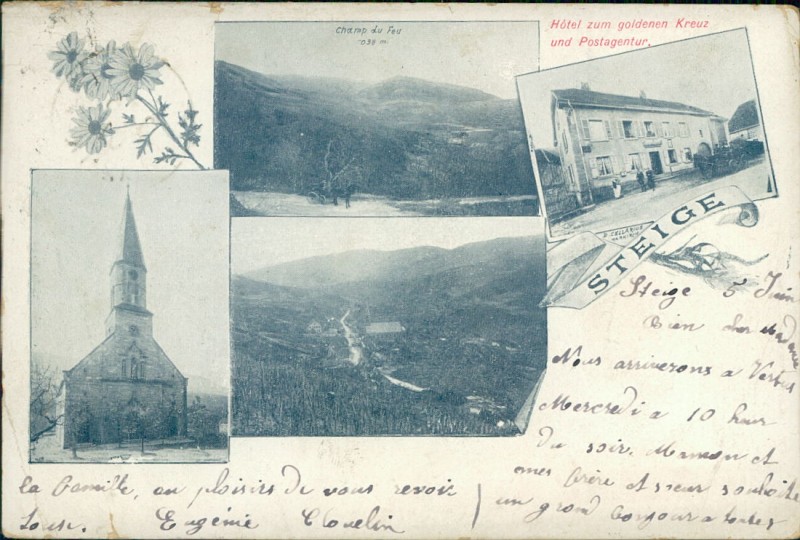 Champ du Feu
1098 m
Hôtel zum goldenen Kreuz
und Postagentur.
STEIGE
Steige 5 Juin
Bien cher Madame
Nous arriverons a Vertus
Mercredi a 10 heur
du soir. Maman et
mes frère et sœur souhaite
un grand bonjour a toutes
la famille, au plaisirs de vous revoir
tous. Eugénie